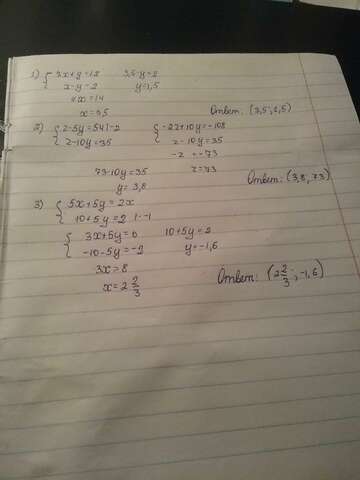 1) { 3x+y=12 3,5-y=2
x-y=2 y=1,5
4x=14
x=3,5 Ответ: (3,5; 1,5)
2) { z-5y=54|·-2 { -2z+10y=-108
z-10y=35 z-10y=35
-z=-73
73-10y=35 z=73
y=3,8 Ответ: (3,8; 73)
3) { 5x+5y=2x
10+5y=2 |·-1
{ 3x+5y=0 10+5y=2
-10-5y=-2 y=-1,6
3x=8
x=2 2/3 Ответ: (2 2/3; -1,6)